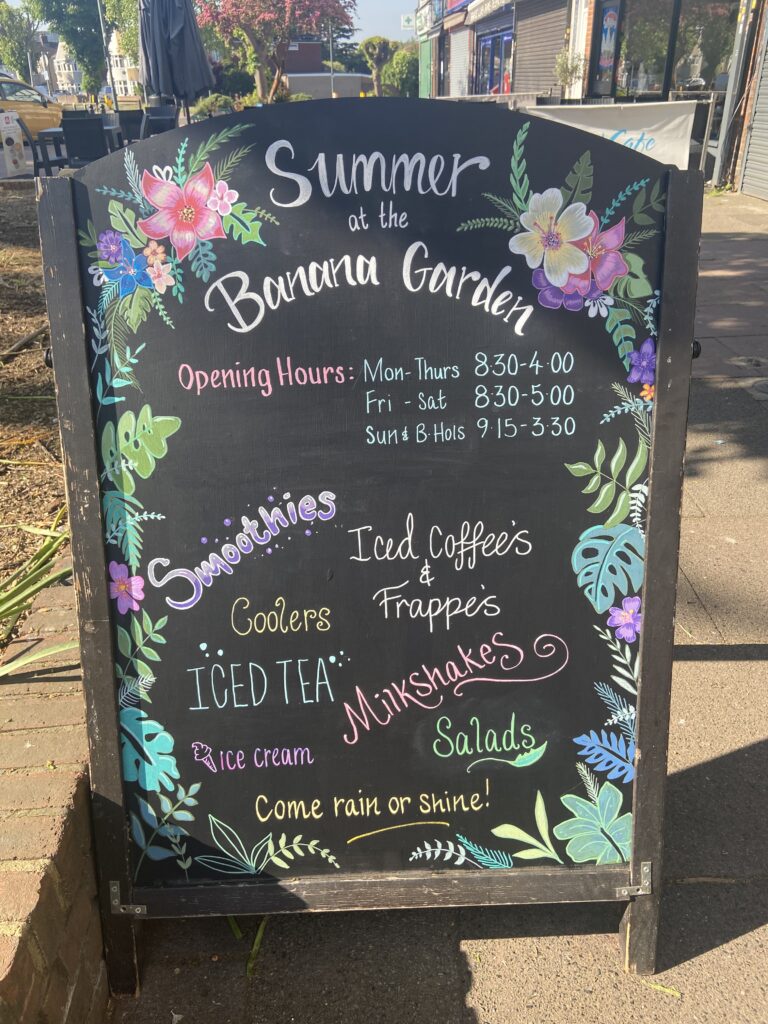 Summer
at the
Banana Garden
Opening Hours: Mon-Thurs 8·30-4·00
Fri - Sat 8·30-5·00
Sun & B·Hols 9·15-3·30
Smoothies
Iced Coffee's
&
Frappe's
Coolers
ICED TEA
Milkshakes
Salads
ice cream
Come rain or shine!
Cafe